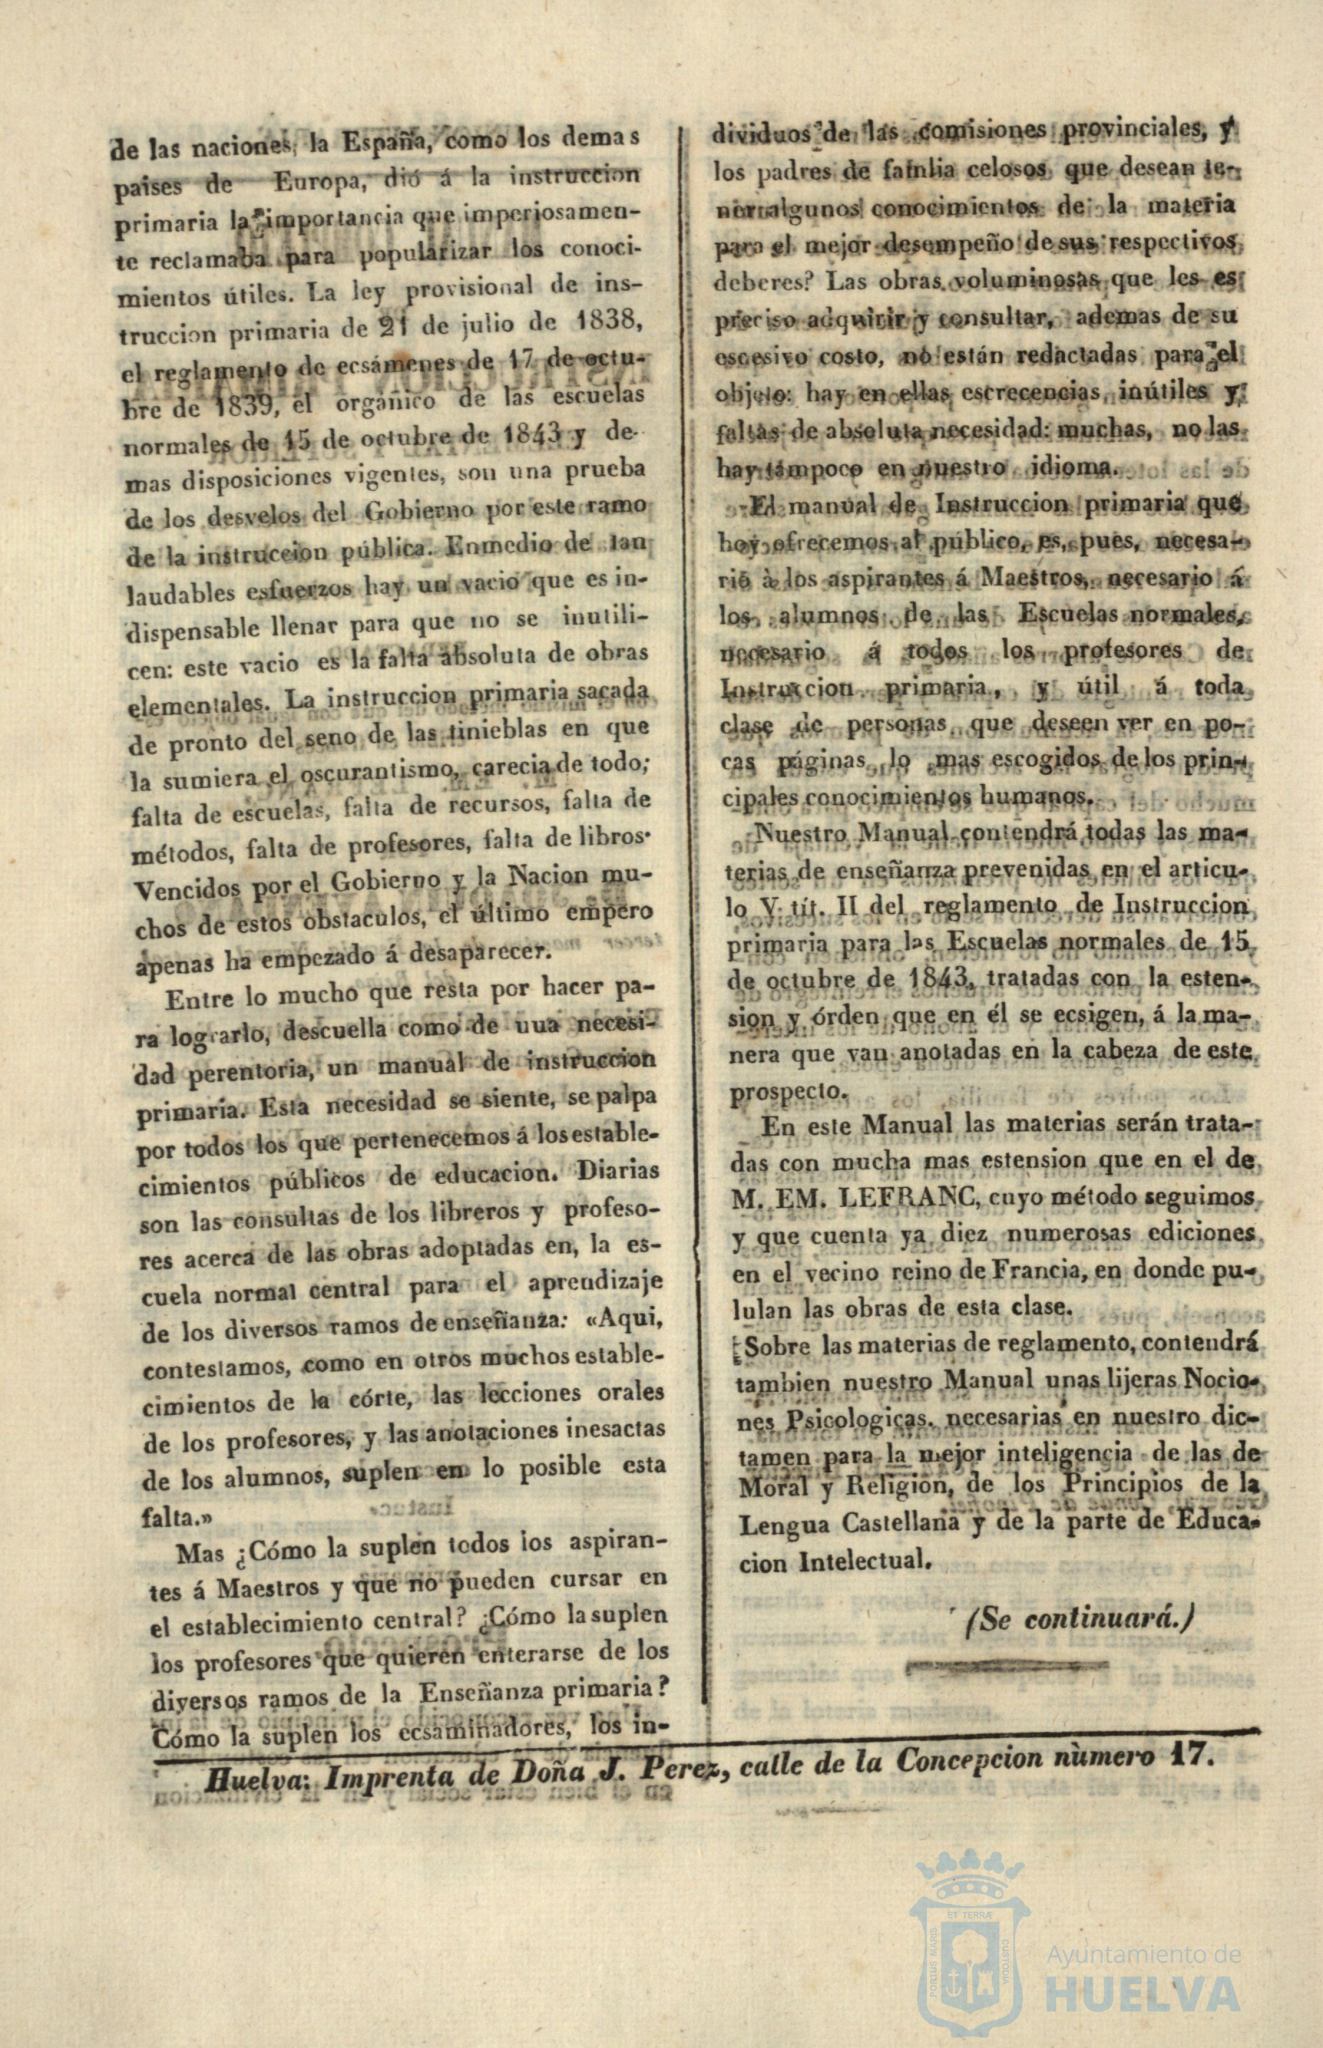 de las naciones, la España, como los demas
paises de Europa, dió á la instruccion
primaria la importancia que imperiosamen-
te reclamaba para popularizar los conoci-
mientos útiles. La ley provisional de ins-
truccion primaria de 21 de julio de 1838,
el reglamento de ecsámenes de 17 de octu-
bre de 1839, el orgánico de las escuelas
normales de 15 de octubre de 1843 y de-
mas disposiciones vigentes, son una prueba
de los desvelos del Gobierno por este ramo
de la instruccion pública. Enmedio de tan
laudables esfuerzos hay un vacio que es in-
dispensable llenar para que no se inutili-
cen: este vacio es la falta absoluta de obras
elementales. La instruccion primaria sacada
de pronto del seno de las tinieblas en que
la sumiera el oscurantismo, carecia de todo;
falta de escuelas, falta de recursos, falta de
métodos, falta de profesores, falta de libros.
Vencidos por el Gobierno y la Nacion mu-
chos de estos obstaculos, el último empero
apenas ha empezado á desaparecer.
Entre lo mucho que resta por hacer pa-
ra lograrlo, descuella como de uua necesi-
dad perentoria, un manual de instruccion
primaria. Esta necesidad se siente, se palpa
por todos los que pertenecemos á los estable-
cimientos públicos de educacion. Diarias
son las consultas de los libreros y profeso-
res acerca de las obras adoptadas en, la es-
cuela normal central para el aprendizaje
de los diversos ramos de enseñanza: «Aqui,
contestamos, como en otros muchos estable-
cimientos de la córte, las lecciones orales
de los profesores, y las anotaciones inesactas
de los alumnos, suplen en lo posible esta
falta.»
Mas ¿Cómo la suplen todos los aspiran-
tes á Maestros y que no pueden cursar en
el establecimiento central? ¿Cómo la suplen
los profesores que quieren enterarse de los
diversos ramos de la Enseñanza primaria?
Cómo la suplen los ecsaminadores, los in-
dividuos de las comisiones provinciales, y
los padres de familia celosos que desean te-
ner algunos conocimientos de la materia
para el mejor desempeño de sus respectivos
deberes? Las obras voluminosas que les es
preciso adquirir y consultar, ademas de su
escesivo costo, no están redactadas para el
objeto: hay en ellas escrecencias inútiles y
faltas de absoluta necesidad: muchas, no las
hay tampoco en nuestro idioma.
El manual de Instruccion primaria que
hoy ofrecemos al público, es, pues, necesa-
rio à los aspirantes á Maestros, necesario á
los alumnos de las Escuelas normales,
necesario á todos los profesores de
Instruccion primaria, y útil á toda
clase de personas que deseen ver en po-
cas páginas lo mas escogidos de los prin-
cipales conocimientos humanos.
Nuestro Manual contendrá todas las ma-
terias de enseñanza prevenidas en el articu-
lo V tít. II del reglamento de Instruccion
primaria para las Escuelas normales de 15
de octubre de 1843, tratadas con la esten-
sion y órden que en él se ecsigen, á la ma-
nera que van anotadas en la cabeza de este
prospecto.
En este Manual las materias serán trata-
das con mucha mas estension que en el de
M. EM. LEFRANC, cuyo método seguimos
y que cuenta ya diez numerosas ediciones
en el vecino reino de Francia, en donde pu-
lulan las obras de esta clase.
Sobre las materias de reglamento, contendrá
tambien nuestro Manual unas lijeras Nocio-
nes Psicologicas, necesarias en nuestro dic-
tamen para la mejor inteligencia de las de
Moral y Religion, de los Principios de la
Lengua Castellana y de la parte de Educa-
cion Intelectual.
(Se continuará.)
Huelva: Imprenta de Doña J. Perez, calle de la Concepcion nùmero 17.
ET TERRÆ
PORTUS MARIS
CUSTODIA
Ayuntamiento de
HUELVA